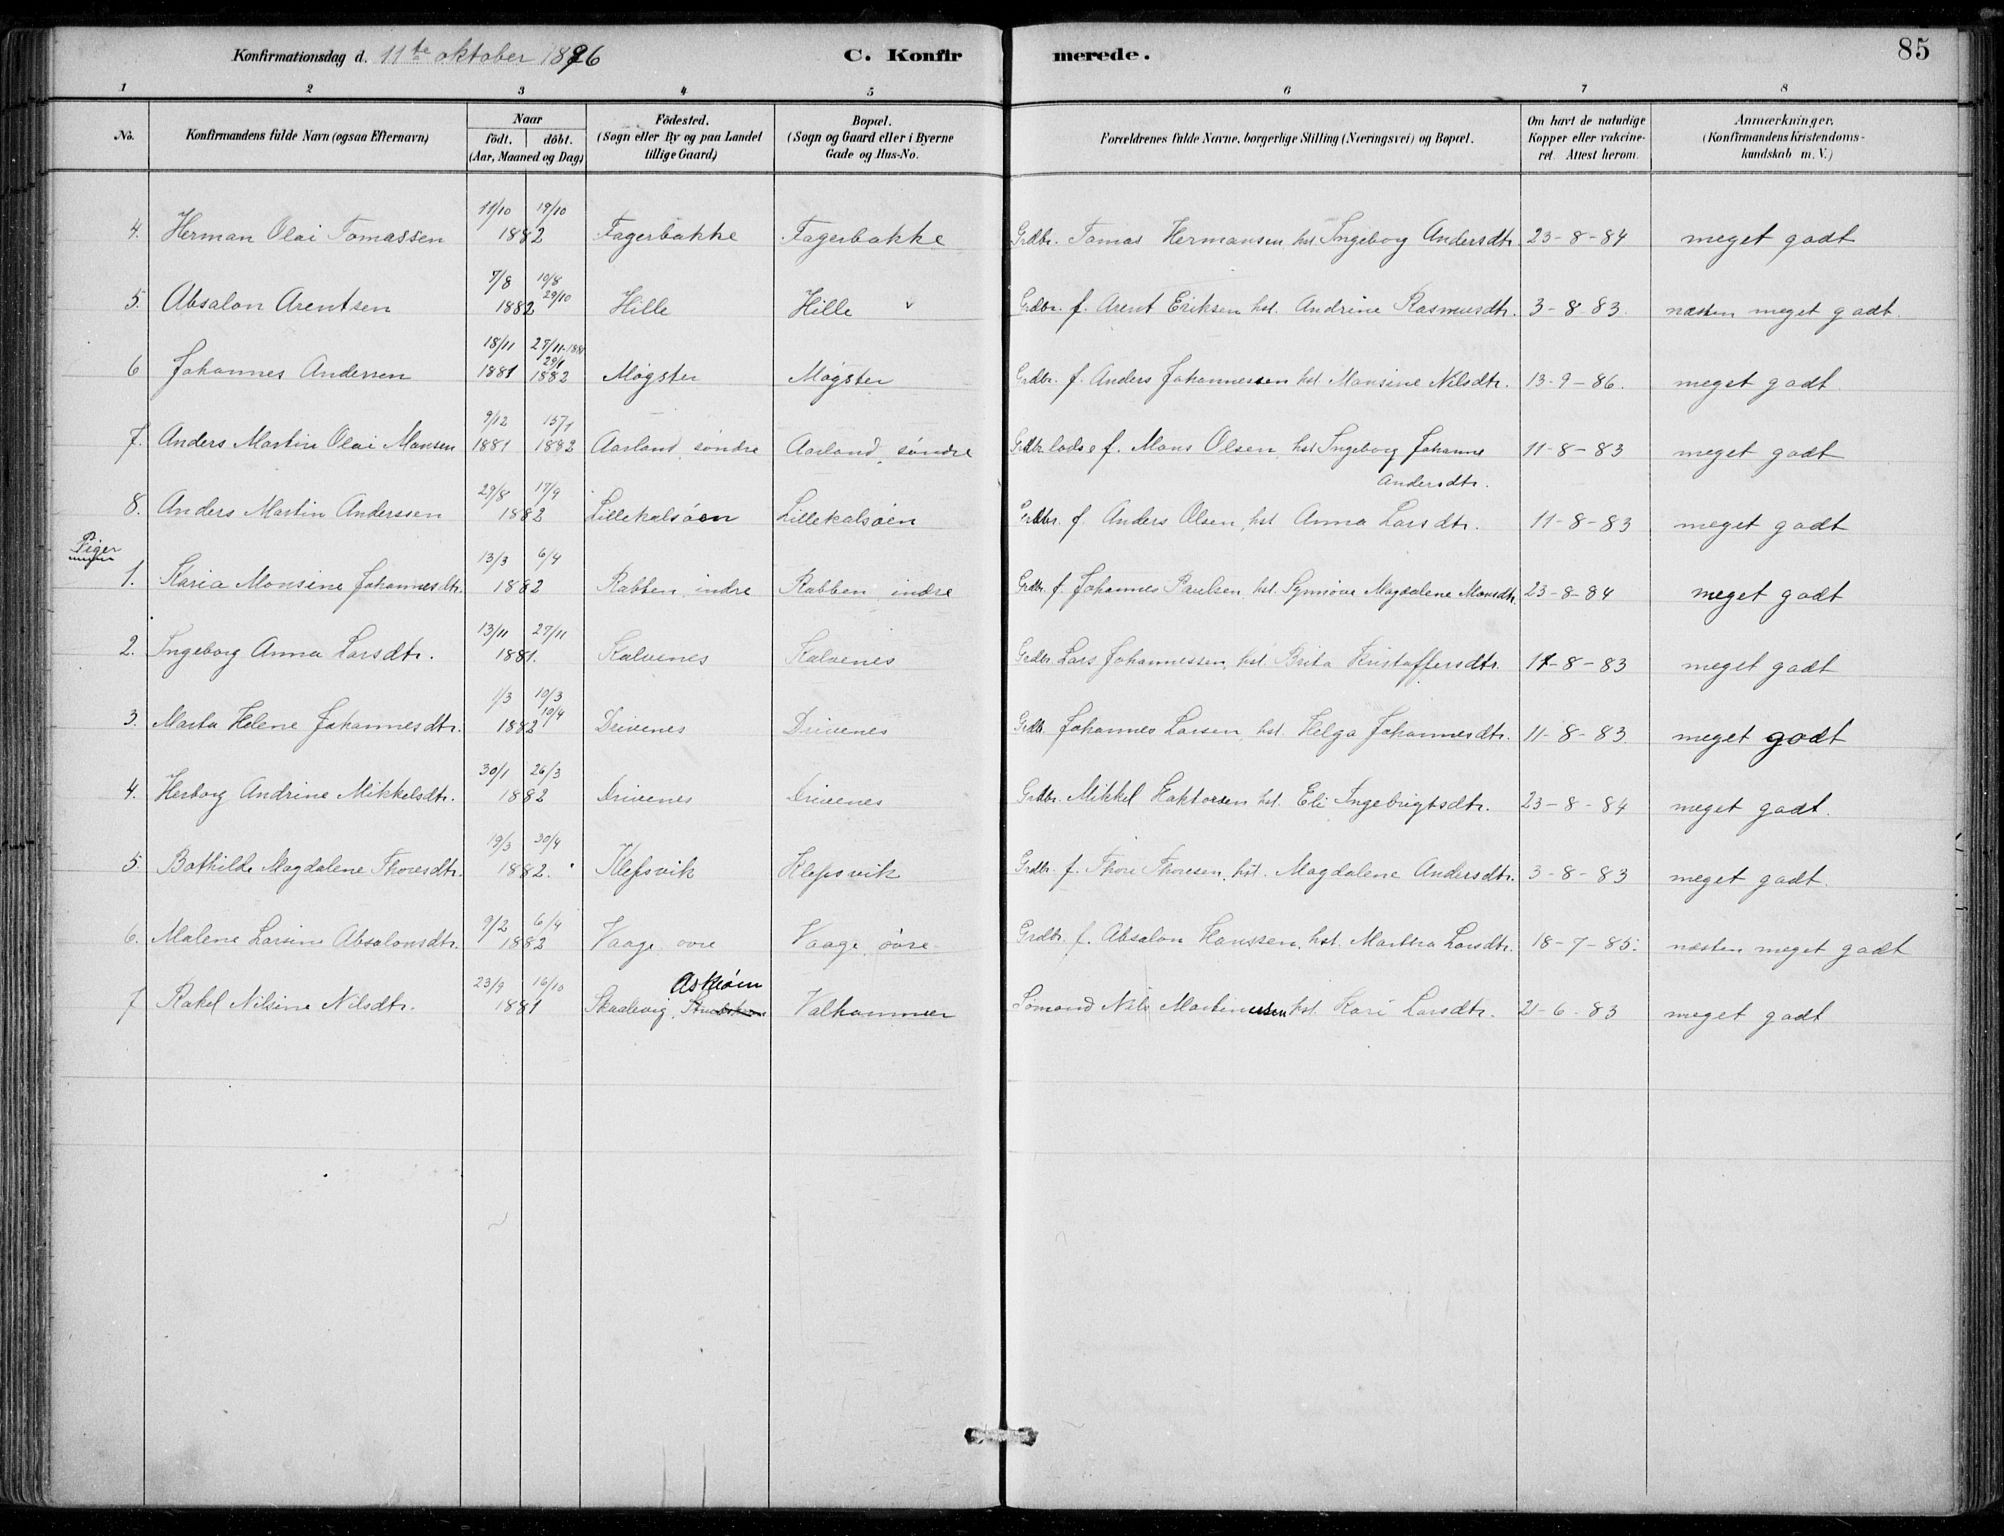 Konfirmationsdag d. 11te oktober 1896 C. Konfirmerede. 85
1 2 3 4 5 6 7 8
No. Konfirmandens fulde Navn (ogsaa Efternavn) Naar födt. döbt. (Aar, Maaned og Dag) Födested. (Sogn eller By og paa Landet tillige Gaard) Bopæl. (Sogn og Gaard eller i Byerne Gade og Hus-No. Forældrenes fulde Navne, borgerlige Stilling (Næringsvei) og Bopæl. Om havt de naturlige Kopper eller vakcineret. Attest herom. Anmærkninger, (Konfirmandens Kristendomskundskab m. V.)
4. Herman Olai Tomassen 11/10 19/10 1882 Fagerbakke Fagerbakke Grdbr. Tomas Hermansen, hst. Ingeborg Andersdtr 23-8-84 meget godt
5. Absalon Arentsen 7/8 19/8 29/10 1882 Hille Hille Grdbr. f. Arent Eriksen hst. Andrine Rasmusdtr. 3-8-83. næsten meget godt.
6 Johannes Andersen 18/11 1881 27/11-1881 29/1 1882 Møgster Møgster Grdbr. f. Anders Johannessen hst Monsine Nilsdtr. 13-9-86. meget godt.
7. Anders Martin Olai Monsen 9/12 1881 15/1 1882 Aarland, søndre Aarland, søndre Grdbr. lods f. Mons Olsen, hst Ingeborg Johanne Andersdtr. 11-8-83 meget godt
8. Anders Martin Anderssen 29/8 17/9 1882 Lillekalsøen Lillekalsøen Grdbr. f. Anders Olsen, hst Anna Larsdtr. 11-8-83 meget godt
Piger
1. Karia Monsine Johannesdtr. 13/3 6/4 1882 Rabben, indre Rabben, indre Grdbr. f. Johannes Paulsen, hst. Synnøve Magdalene Monsdtr. 23-8-84 meget godt
2. Ingeborg Anna Larsdtr. 13/11 27/11 1881. Kalvenes Kalvenes Grdbr. Lars Johannessen, hst. Brita Kristoffersdtr. 11-8-83 meget godt
3. Marta Helene Johannesdtr. 1/3 10/3 10/4 1882 Drivenes Drivenes Grdbr. Johannes Larsen, hst. Helga Johannesdtr. 11-8-83. meget godt
4. Herborg Andrine Mikkelsdtr. 30/1 26/3 1882 Drivenes Drivenes Grdbr. Mikkel Haktorsen hst. Eli Ingebrigtsdtr. 23-8-84 meget godt.
5. Bothilde Magdalene Thoresdtr. 19/3 30/4 1882. Klepsvik Klepsvik Grdbr. f. Thore Thoresen, hst. Magdalene Andersdtr. 3-8-83 meget godt.
6. Malene Larsine Absalonsdtr. 9/2 6/4 1882 Vaage, øvre Vaage, øvre Grdbr. f. Absalon Hanssen, hst. Martha Larsdtr. 18-7-85. næsten meget godt
7 Rakel Nilsine Nilsdtr. 23/9 16/10 1881 Skaalevig, Askøen Valhammer Sømand Nils Martinussen hst. Kari Larsdtr. 21-6-83 meget godt